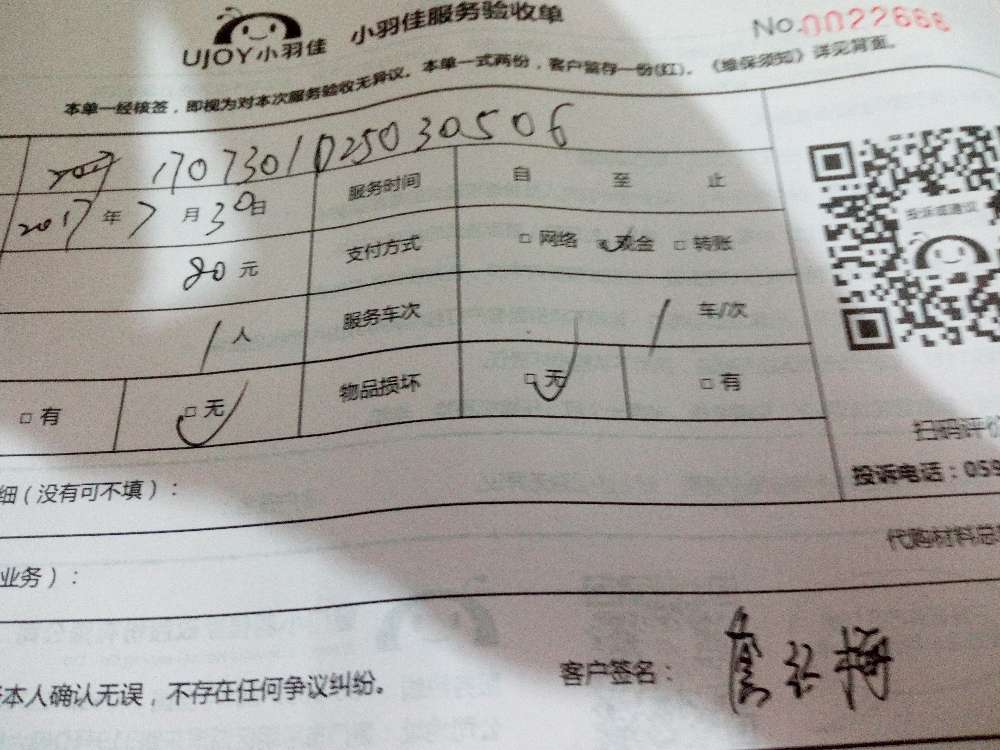 UJOY小羽佳 小羽佳服务验收单 No.0022666
本单一经核签，即视为对本次服务验收无异议。本单一式两份，客户留存一份(红)。《维保须知》详见背面。
1707301025030506
2017年7月30日 服务时间 自 至 止
80元 支付方式 □网络 现金 □转账
1人 服务车次 1车/次
□有 □无 物品损坏 □无 □有
投诉或建议
扫码评价
细（没有可不填）：
投诉电话：059
代购材料总
业务）：
本人确认无误，不存在任何争议纠纷。
客户签名：